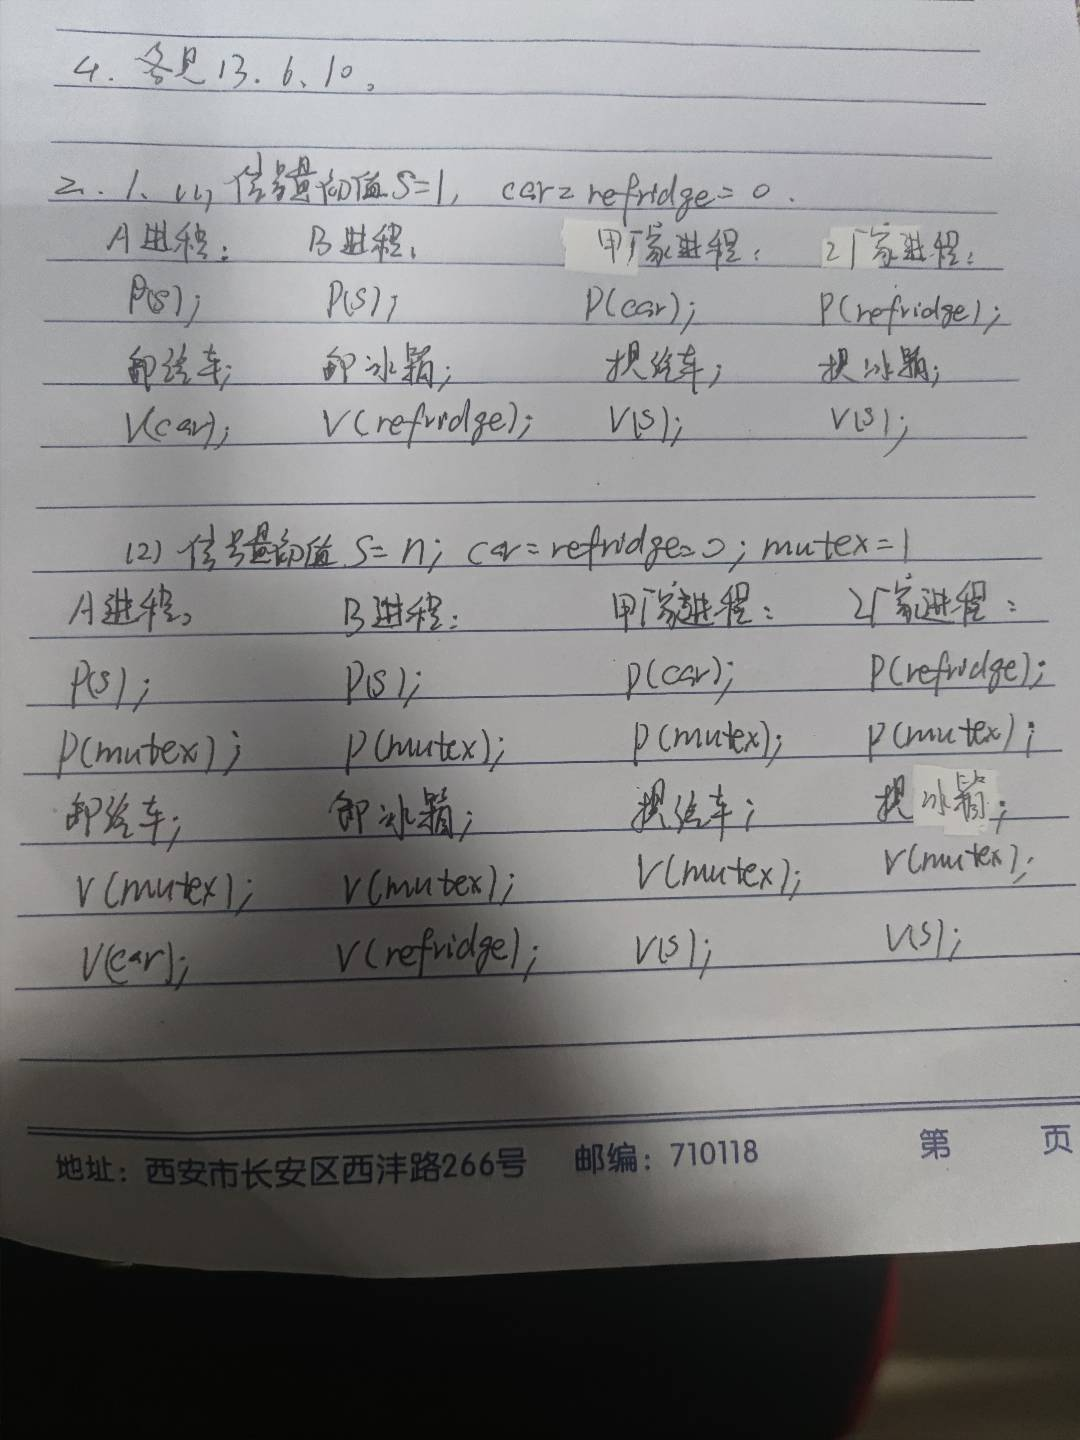 4. 答见13.6.10。
二. 1. (1) 信号量初值S=1, car=refridge=0.
A进程: B进程: 甲厂家进程: 乙厂家进程:
P(S); P(S); P(car); P(refridge);
卸汽车; 卸冰箱; 提汽车; 提冰箱;
V(car); V(refridge); V(S); V(S);
(2) 信号量初值 S=n; car=refridge=0; mutex=1
A进程: B进程: 甲厂家进程: 乙厂家进程:
P(S); P(S); P(car); P(refridge);
P(mutex); P(mutex); P(mutex); P(mutex);
卸汽车; 卸冰箱; 提汽车; 提冰箱;
V(mutex); V(mutex); V(mutex); V(mutex);
V(car); V(refridge); V(S); V(S);
地址：西安市长安区西沣路266号 邮编：710118 第 页